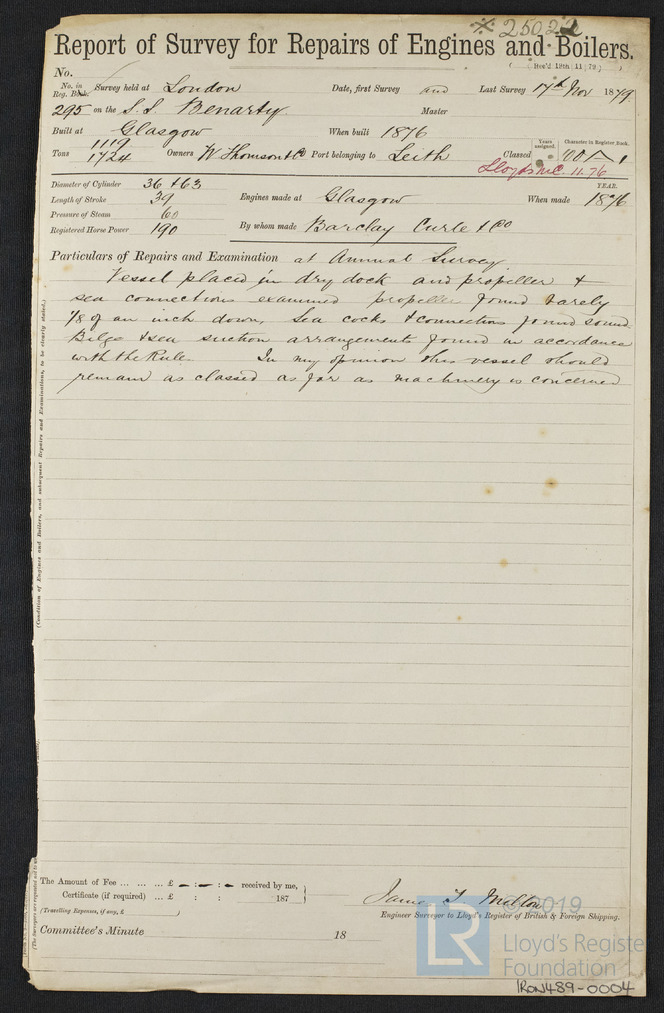 ※ 25022
Report of Survey for Repairs of Engines and Boilers.
(Rec'd 19th | 11 | 79)
No.
No. in Reg. Book. Survey held at London Date, first Survey and Last Survey 17th Nov 1879
295 on the S.S. Benarty Master
Built at Glasgow When built 1876
Tons 1119 1724 Owners W Thomson & Co Port belonging to Leith Classed Years assigned. Character in Register Book. 100 A 1
Lloyds MC. 11.76
Diameter of Cylinder 36 & 63
Length of Stroke 39
Pressure of Steam 60
Registered Horse Power 190
Engines made at Glasgow When made YEAR. 1876
By whom made Barclay Curle & Co
Particulars of Repairs and Examination at Annual Survey
Vessel placed in dry dock and propeller &
sea connections examined propeller found barely
1/8 of an inch down, Sea cocks & connections found sound
Bilge & sea suction arrangements found in accordance
with the Rule. In my opinion this vessel should
remain as classed as far as machinery is concerned
(Condition of Engines and Boilers, and subsequent Repairs and Examinations, to be clearly stated.)
The Amount of Fee ... ... ... £ – : – : – received by me,
Certificate (if required) ... £ : : 187
(Travelling Expenses, if any, £ )
James T. Milton
Engineer Surveyor to Lloyd's Register of British & Foreign Shipping.
Committee's Minute 18
© 2019
LR
Lloyd's Registe
Foundation
IRON489-0004